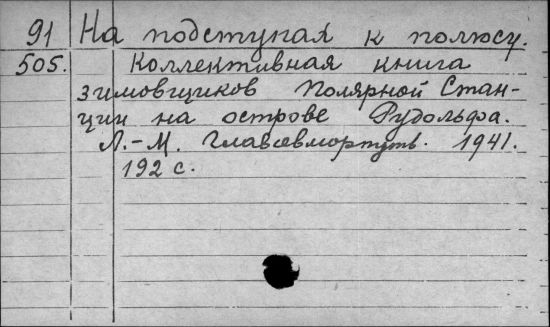 91 На подступах к полюсу.
505. Коллективная книга
зимовщиков Полярной Стан-
ции на острове Рудольфа.
Л.-М. Главсевморпуть. 1941.
192 с.